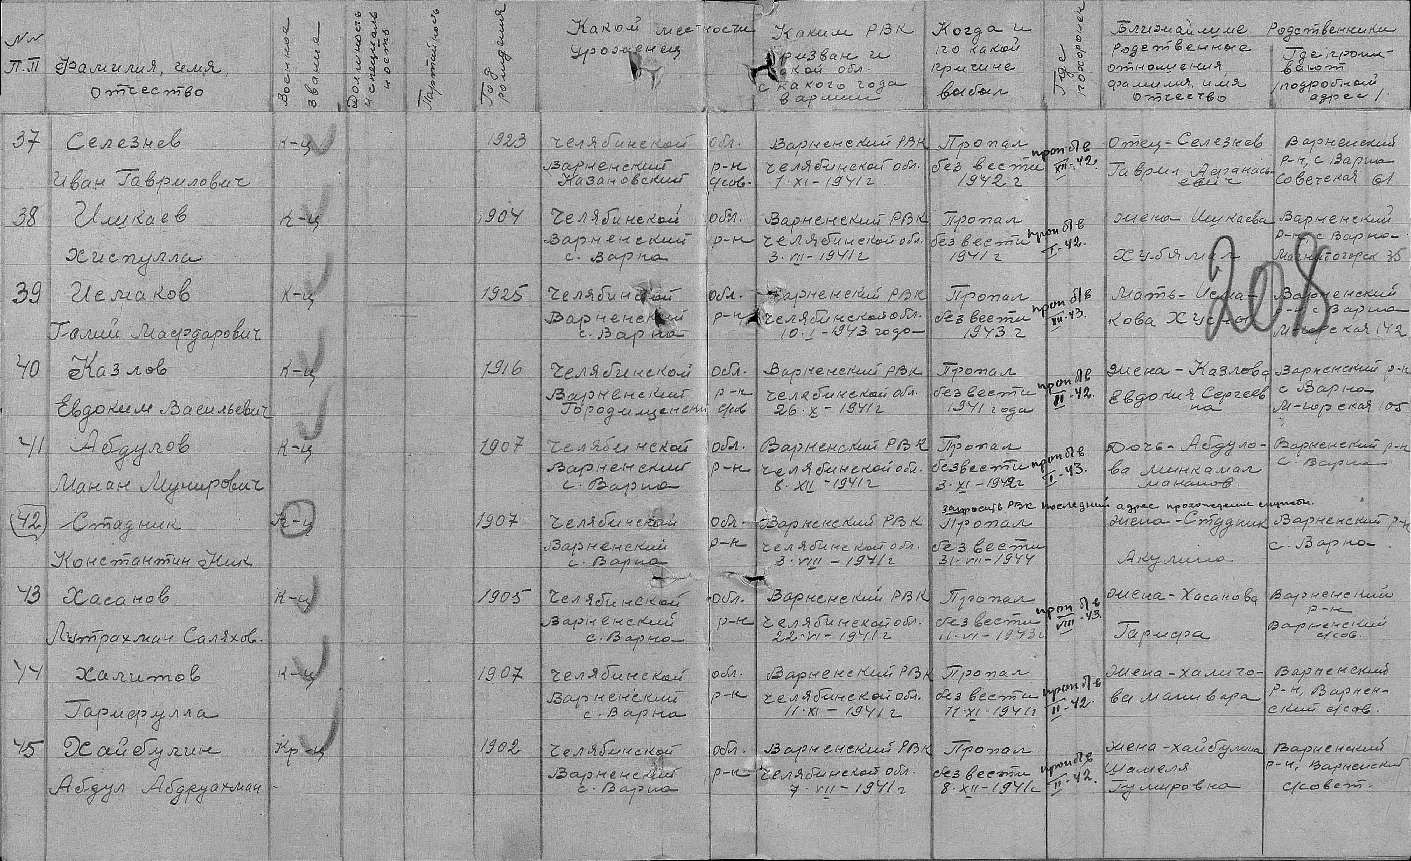 №№ п.п
Фамилия, имя, отчество
Военное звание
Должность и специальность
Партийность
Год рождения
Какой местности уроженец
Каким РВК призван и какой обл. с какого года в армии
Когда и по какой причине выбыл
Где похоронен
Ближайшие Родственники
родственные отношения фамилия, имя отчество
Где проживают /подробный адрес/
37 Селезнев к-ц 1923 Челябинской обл. Варненский РВК Пропал проп б/в Отец-Селезнев Варненский
Варненский р-н Челябинской обл. без вести XII-42. р-н, с Варна
Иван Гаврилович Казановский с/сов. 1·XI-1941г 1942 г Гаврил Афанасьевич Советская 61
38 Ишкаев к-ц 1904 Челябинской обл. Варненский РВК Пропал проп б/в жена Ишкаева Варненский
Варненский р-н Челябинской обл. без вести I-42. р-н, с Варна
Хиспулла с. Варна 3·VII-1941г 1941 г Хубямал Магнитогорск 35
208
39 Исмаков к-ц 1925 Челябинской обл. Варненский РВК Пропал проп б/в Мать-Исма- Варненский
Варненский р-н Челябинской обл. без вести 43. кова р-н Варна
Галий Мафдарович с. Варна 10·I-1943 года 1943 г 142
40 Казлов к-ц 1916 Челябинской обл. Варненский РВК Пропал проп б/в жена-Казлова Варненский р-н
Варненский р-н Челябинской обл. без вести II-42. Евдокия Сергеев с Варна
Евдоким Васильевич Городищенски с/сов 26·X-1941г 1941 года на М-горская 105
41 Абдулов к-ц 1907 Челябинской обл. Варненский РВК Пропал проп б/в Дочь-Абдуло- Варненский р-н
Варненский р-н Челябинской обл. без вести I-43. ва Минкамал с. Варна
Манан Мунирович с. Варна 8·XII-1941г 3·XI-1942г манапов
запросить РВК последний адрес прохождения службы.
42 Стадник к-ц 1907 Челябинской обл. Варненский РВК Пропал жена-Студник Варненский р-н
Варненский р-н Челябинской обл. без вести с. Варна
Константин Ник с. Варна 3·VIII-1941г 31·VII-1944 Акулина
43 Хасанов к-ц 1905 Челябинской обл. Варненский РВК Пропал проп б/в жена-Хасанова Варненский
Варненский р-н Челябинской обл. без вести VIII-43. р-н
Лутрахман Саляхов. с. Варна 22·VI-1941г 11·VI-1943г Гарифа Варненский с/сов.
44 Халитов к-ц 1907 Челябинской обл. Варненский РВК Пропал проп б/в жена-халито- Варненский
Варненский р-н Челябинской обл. без вести II-42. ва р-н, Варнен-
Гарифулла с. Варна 11·XI-1941г 11·XI·1941г ский с/сов.
45 Хайбулин Кр-ц 1902 Челябинской обл. Варненский РВК Пропал проп б/в жена-хайбулина Варненский
Варненский р-н Челябинской обл. без вести II-42. Шамеля р-н, Варненский
Абдул Абдруахман с. Варна 7·VII-1941г 8·XII-1941г Гумировна с/совет.